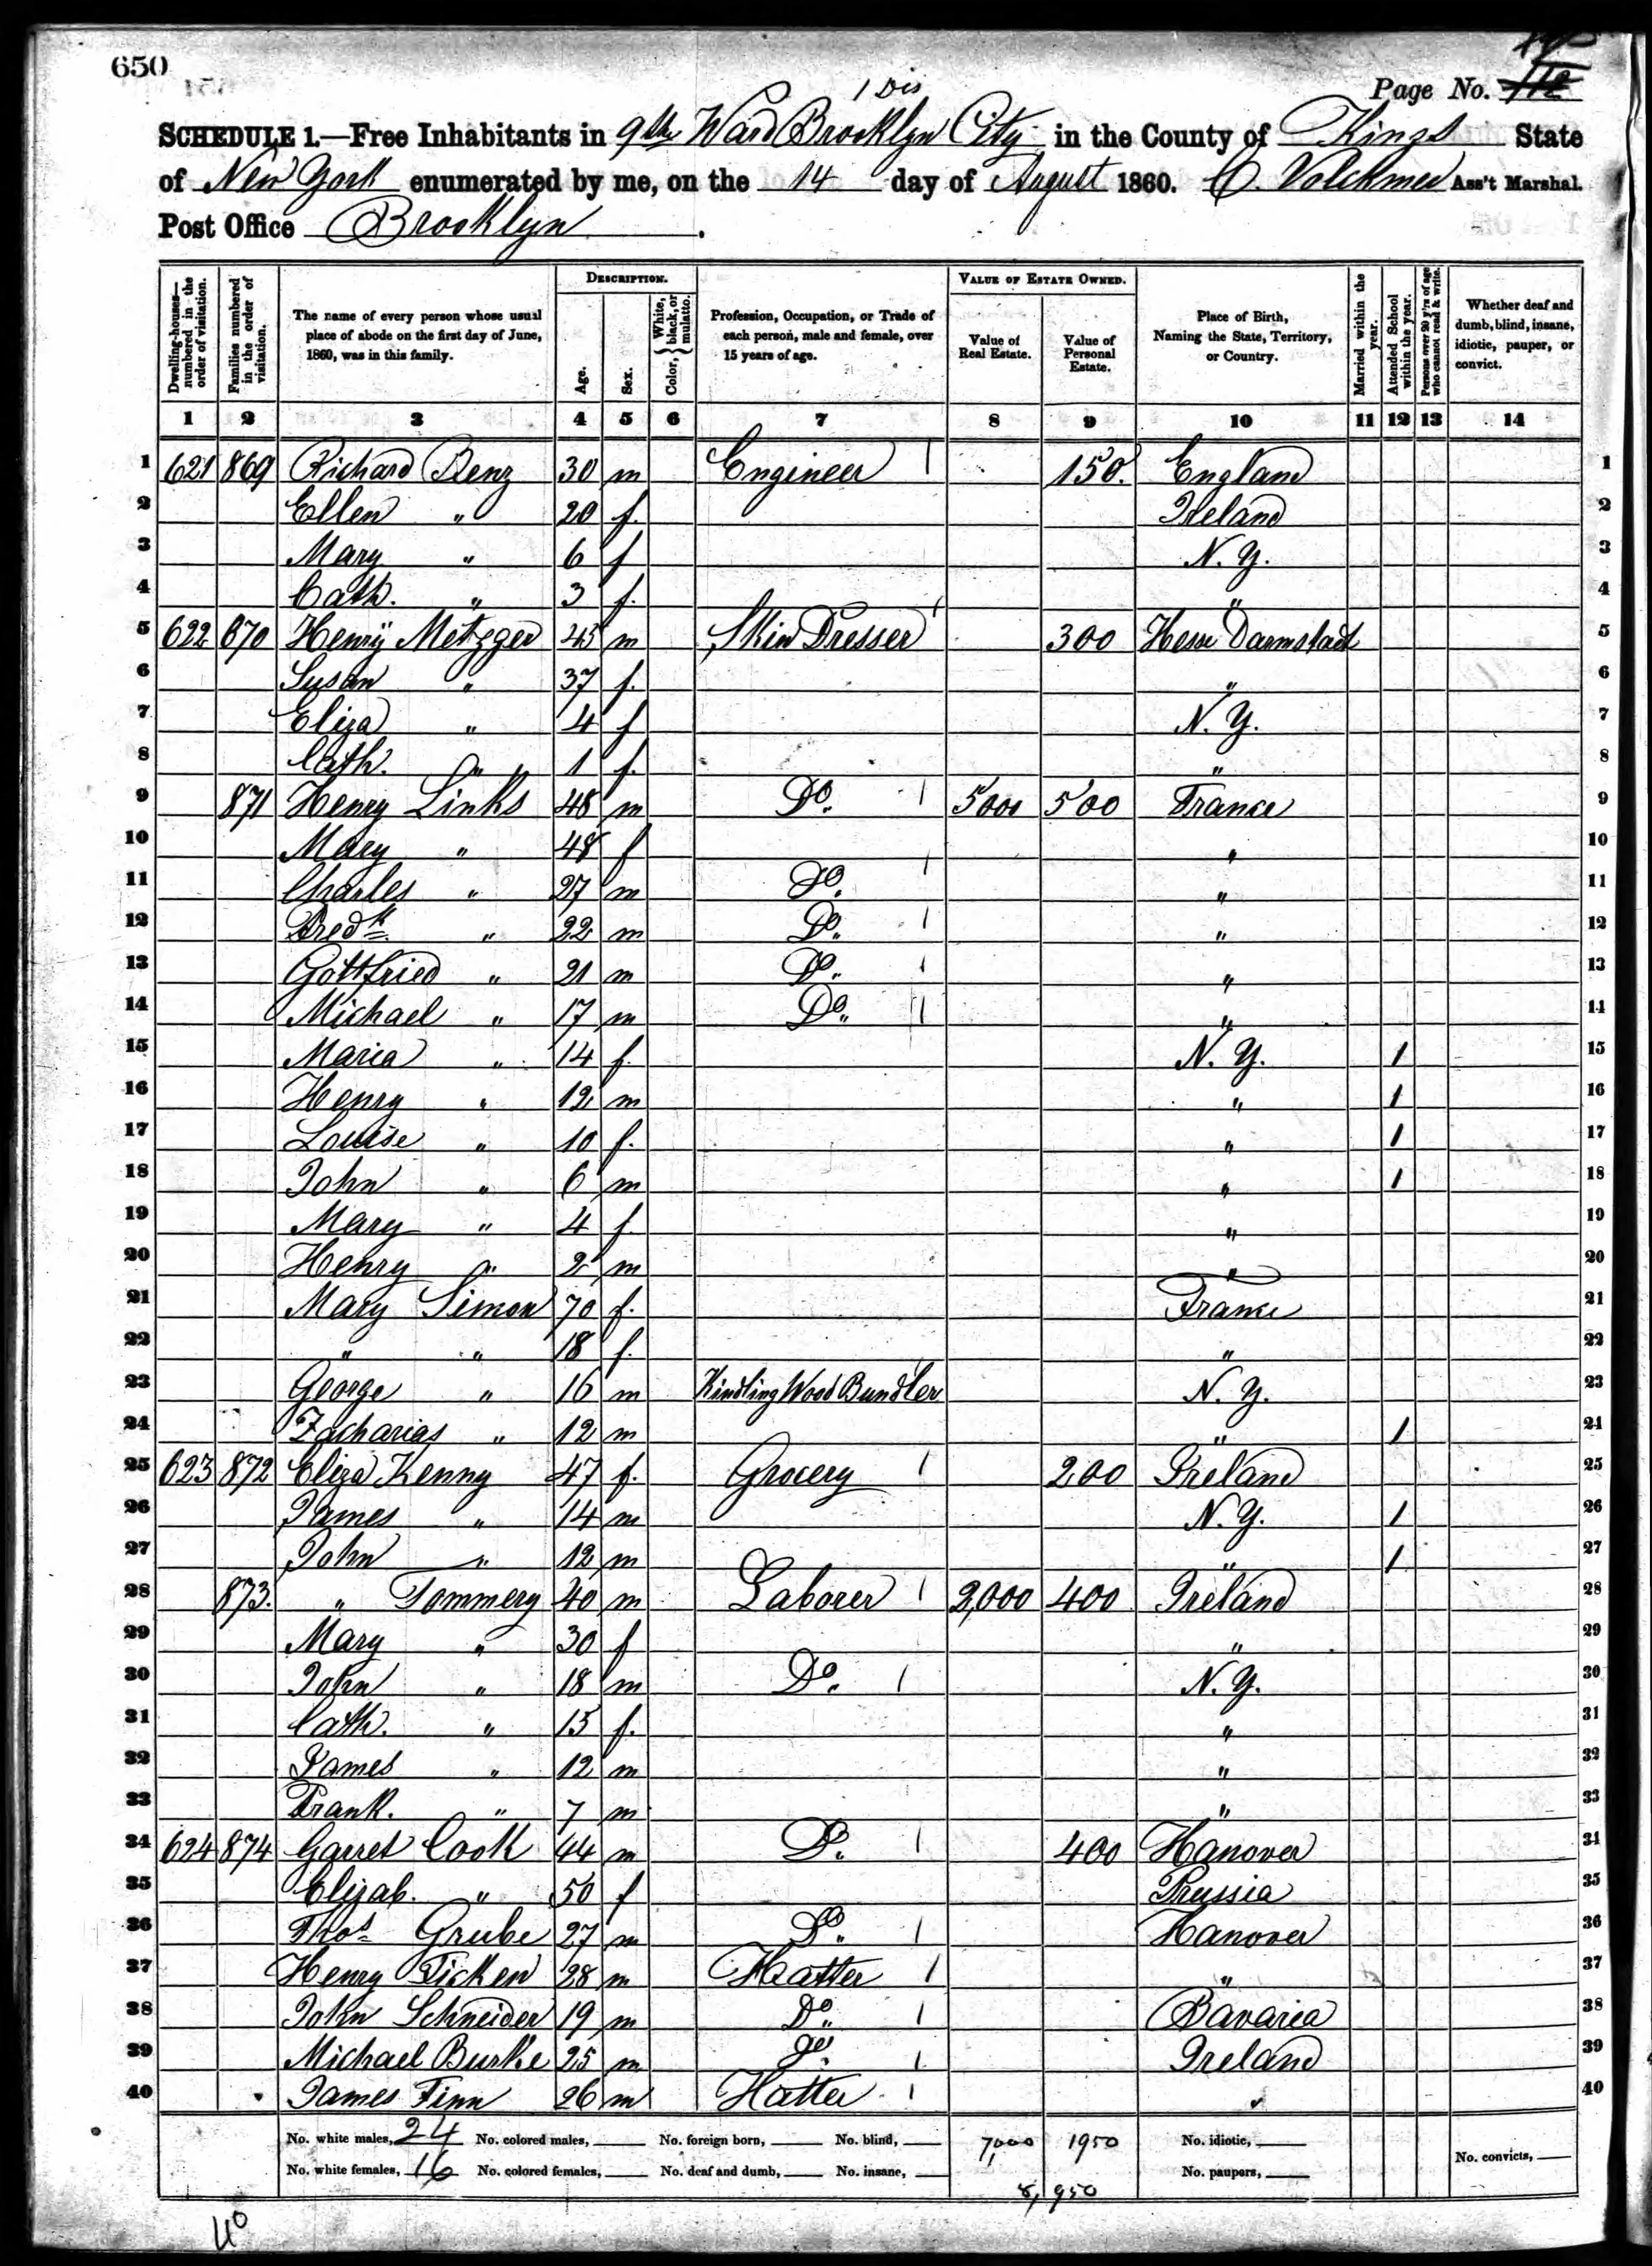 650
Page No. 112
1 Dis
SCHEDULE 1.—Free Inhabitants in 9th Ward Brooklyn City in the County of Kings State
of New York enumerated by me, on the 14 day of August 1860. C. Volckmer Ass't Marshal.
Post Office Brooklyn.
Dwelling-houses—numbered in the order of visitation.
Families numbered in the order of visitation.
The name of every person whose usual place of abode on the first day of June, 1860, was in this family.
DESCRIPTION.
Age.
Sex.
Color, { White, black, or mulatto.
Profession, Occupation, or Trade of each person, male and female, over 15 years of age.
VALUE OF ESTATE OWNED.
Value of Real Estate.
Value of Personal Estate.
Place of Birth, Naming the State, Territory, or Country.
Married within the year.
Attended School within the year.
Persons over 20 y'rs of age who cannot read & write.
Whether deaf and dumb, blind, insane, idiotic, pauper, or convict.
1 2 3 4 5 6 7 8 9 10 11 12 13 14
1 621 869 Richard Benz 30 m Engineer 1 150. England 1
2 Ellen " 20 f. Ireland 2
3 Mary " 6 f N.Y. 3
4 Cath. " 3 f. " 4
5 622 870 Henry Metzger 45 m Skin Dresser 1 300 Hesse Darmstadt 5
6 Susan " 37 f. " 6
7 Eliza " 4 f N.Y. 7
8 Cath. " 1 f. " 8
9 871 Henry Links 48 m Do. 1 5000 500 France 9
10 Mary " 48 f " 10
11 Charles " 27 m Do. 1 " 11
12 Fredk. " 22 m Do. 1 " 12
13 Gottfried " 21 m Do. 1 " 13
14 Michael " 17 m Do. 1 " 14
15 Maria " 14 f. N.Y. 1 15
16 Henry " 12 m " 1 16
17 Louise " 10 f. " 1 17
18 John " 6 m " 1 18
19 Mary " 4 f. " 19
20 Henry " 2 m " 20
21 Mary Simon 70 f. France 21
22 " " 18 f. " 22
23 George " 16 m Kindling Wood Bundler N.Y. 23
24 Zacharias " 12 m " 1 24
25 623 872 Eliza Kenny 47 f. Grocery 1 200 Ireland 25
26 James " 14 m N.Y. 1 26
27 John " 12 m " 1 27
28 873. " Tommery 40 m Laborer 1 2,000 400 Ireland 28
29 Mary " 30 f " 29
30 John " 18 m Do. 1 N.Y. 30
31 Cath. " 15 f. " 31
32 James " 12 m " 32
33 Frank. " 7 m " 33
34 624 874 Garret Cook 44 m Do. 1 400 Hanover 34
35 Elizab. " 50 f Prussia 35
36 Thos. Grube 27 m Do. 1 Hanover 36
37 Henry Ticken 28 m Hatter 1 " 37
38 John Schneider 19 m Do. 1 Bavaria 38
39 Michael Burke 25 m 1 Ireland 39
40 James Finn 26 m Hatter 1 " 40
No. white males, 24 No. colored males, No. foreign born, No. blind, 7,000 1950 No. idiotic,
No. white females, 16 No. colored females, No. deaf and dumb, No. insane, No. paupers, No. convicts,
8,950
40